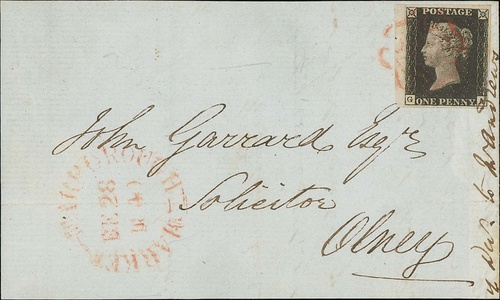 POSTAGE
ONE PENNY
G
John Garrard Esqr
Solicitor
Olney
MARKET-HARBOROUGH
28